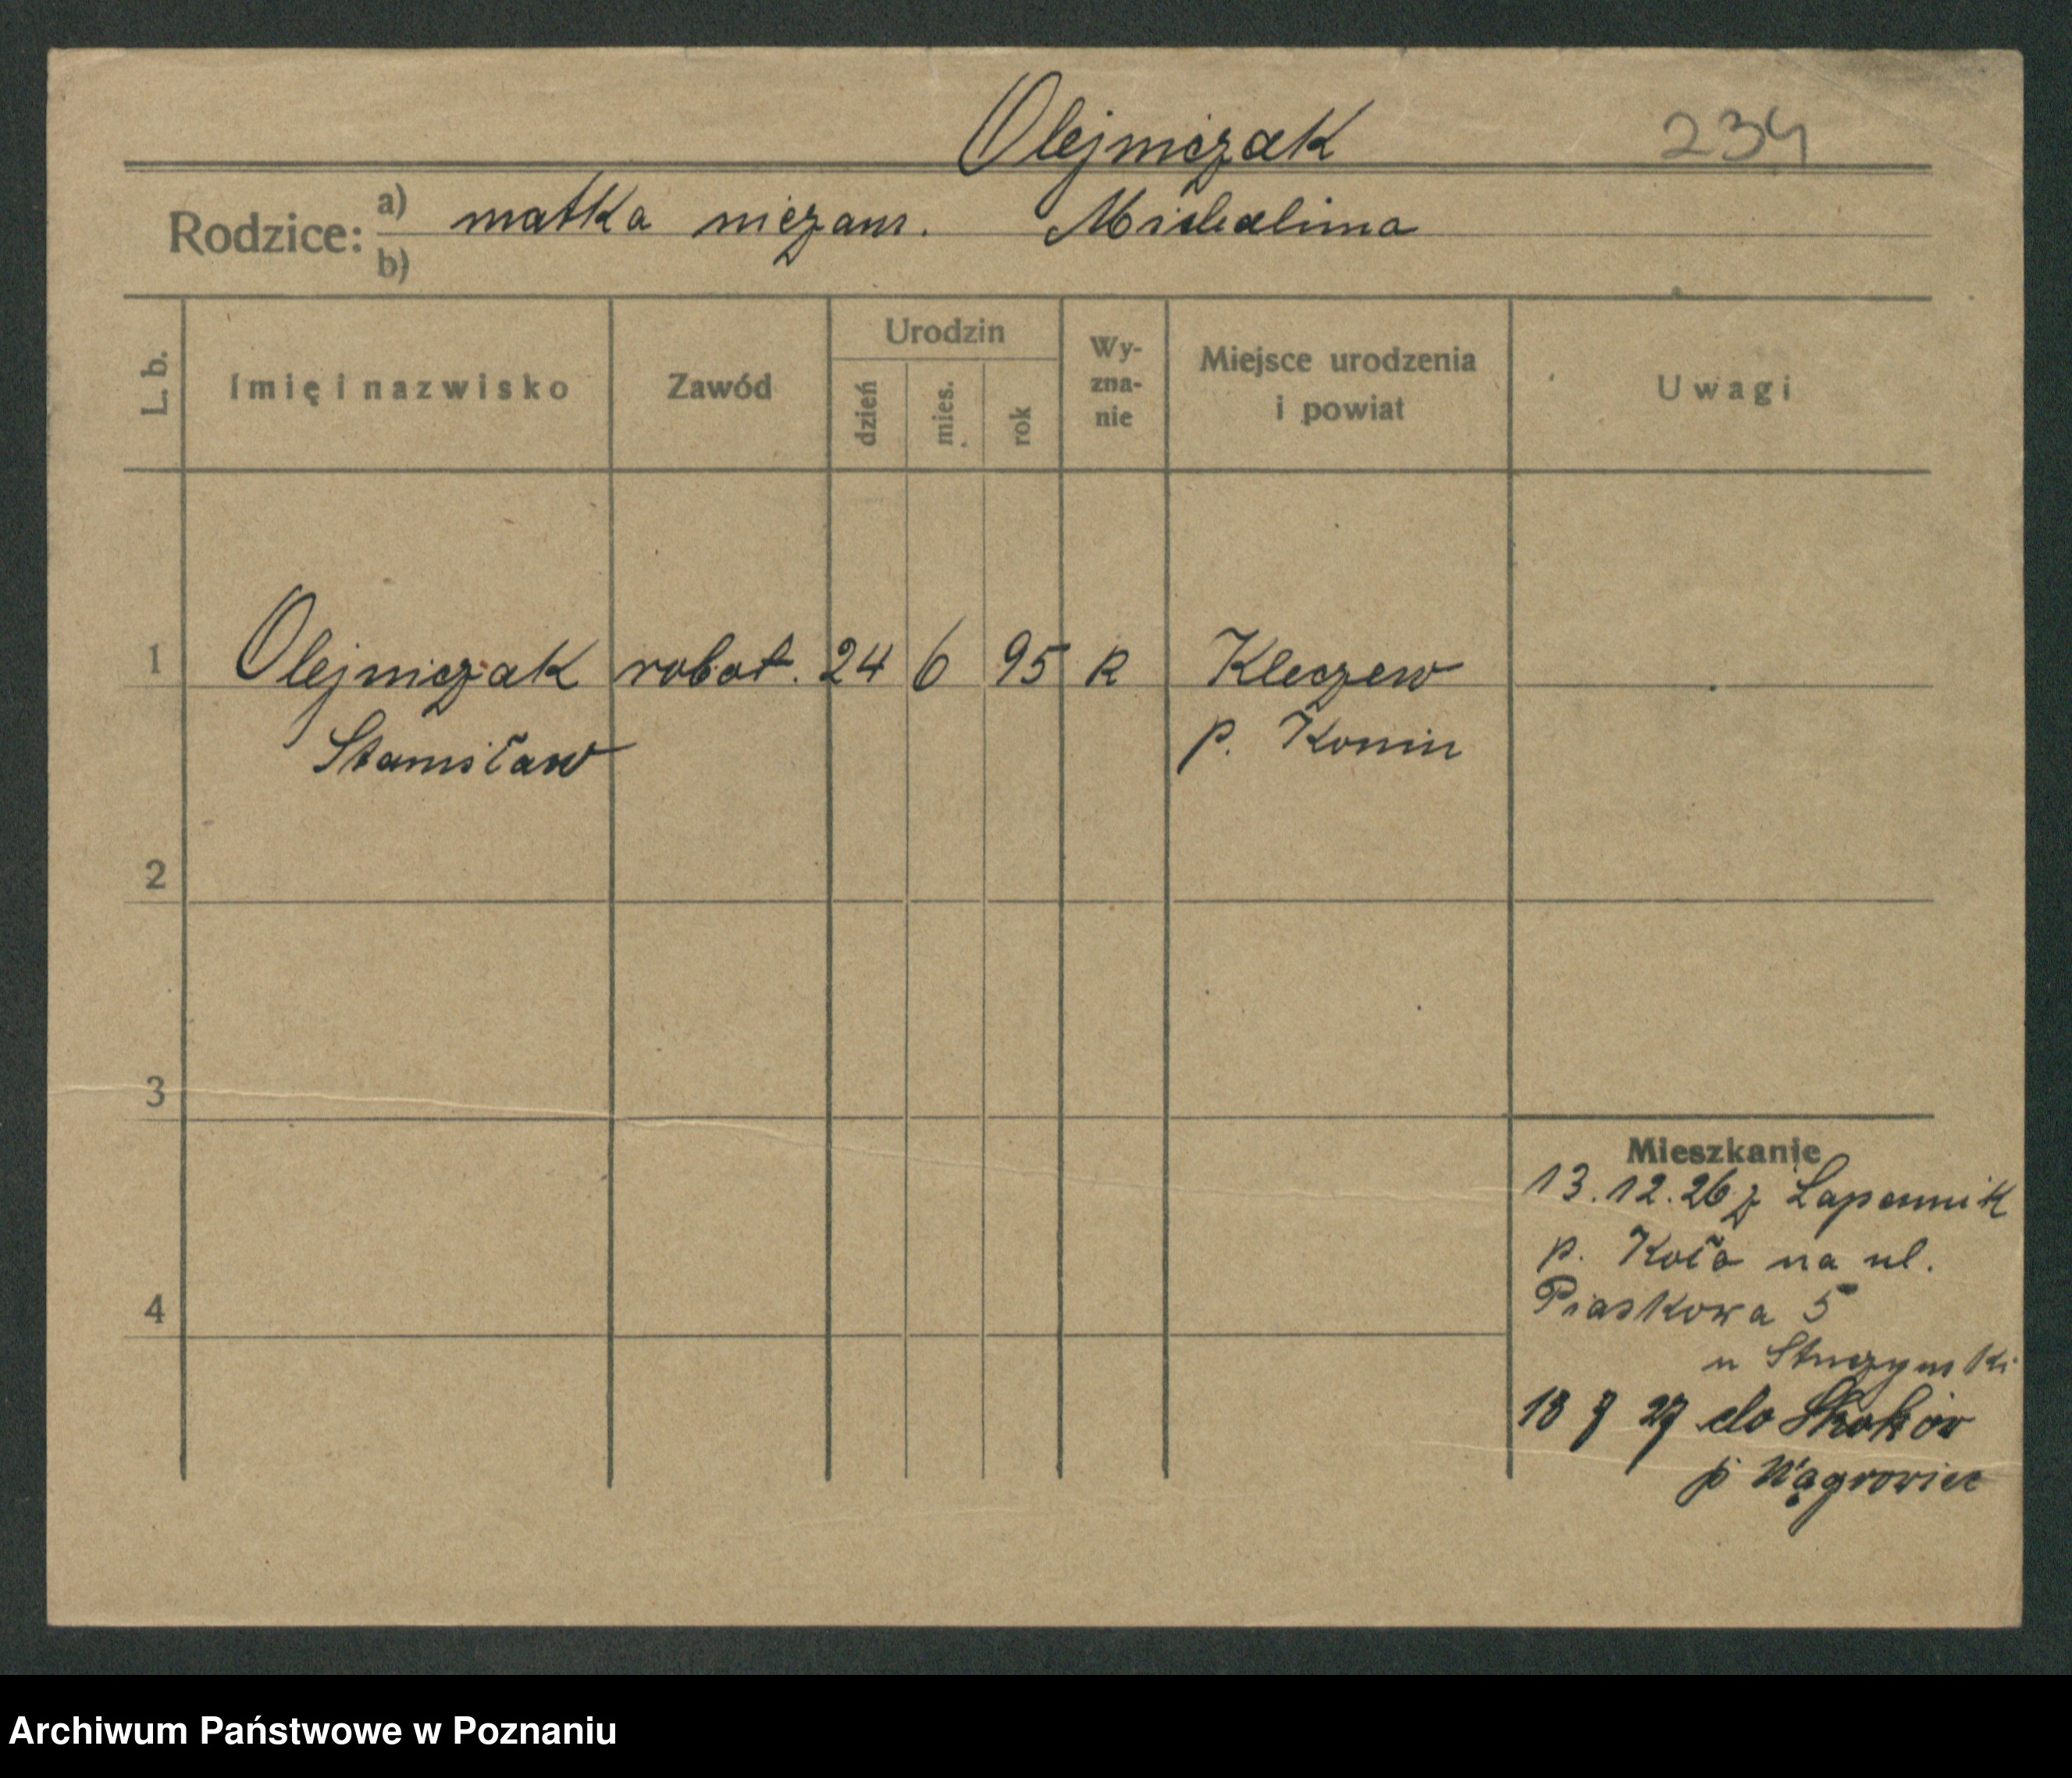 Olejniczak 234
Rodzice: a) matka niezam. Michalina
b)
L. b.
Imię i nazwisko
Zawód
Urodzin
dzień
mies.
rok
Wy-
zna-
nie
Miejsce urodzenia
i powiat
Uwagi
1 Olejniczak robot. 24 6 95 k Kleczew
Stanisław p. Konin
2
3
4
Mieszkanie
13.12.26 z
p. Koło na ul.
Piaskowa 5
u
18 7 27 do Skoków
p Wągrowiec
Archiwum Państwowe w Poznaniu